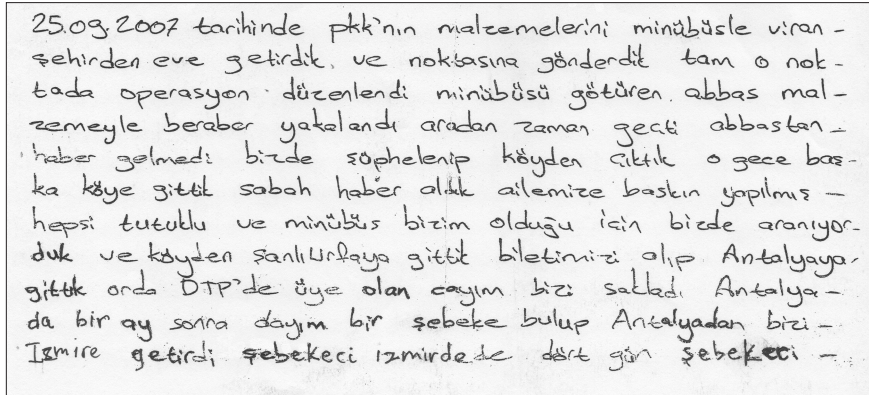 25.09.2007 tarihinde pkk'nın malzemelerini minübüsle viran -
şehirden eve getirdik. ve noktasına gönderdik tam o nok -
tada operasyon düzenlendi minübüsü götüren abbas mal -
zemeyle beraber yakalandı aradan zaman geçti abbastan -
haber gelmedi bizde şüphelenip köyden çıktık o gece baş -
ka köye gittik sabah haber aldık ailemize baskın yapılmış -
hepsi tutuklu ve minübüs bizim olduğu için bizde aranıyor-
duk ve köyden şanlıUrfaya gittik biletimizi alıp Antalyaya
gittik orda DTP'de üye olan dayım bizi sakladı Antalya -
da bir ay sonra dayım bir şebeke bulup Antalyadan bizi -
Izmire getirdi şebekeci izmirdede dört gün şebekeci -